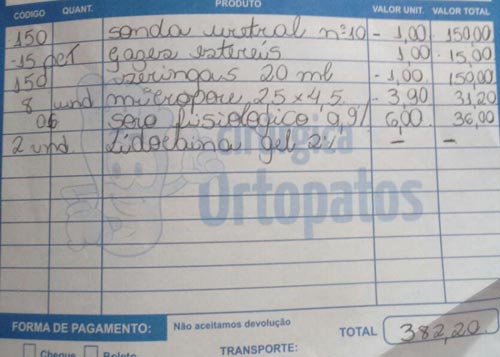 CÓDIGO QUANT. PRODUTO VALOR UNIT. VALOR TOTAL
150 sonda uretral nº 10 - 1,00 150,00
15 pct gazes estereis 1,00 - 15,00
150 seringas 20 ml - 1,00 150,00
8 und micropore 2,5 x 4,5 - 3,90 31,20
06 soro fisiologico 0,9% 6,00 36,00
2 und Lidocaina gel 2% - -
cirúrgica
Ortopatos
FORMA DE PAGAMENTO: Não aceitamos devolução TOTAL 382,20
Cheque Boleto TRANSPORTE: